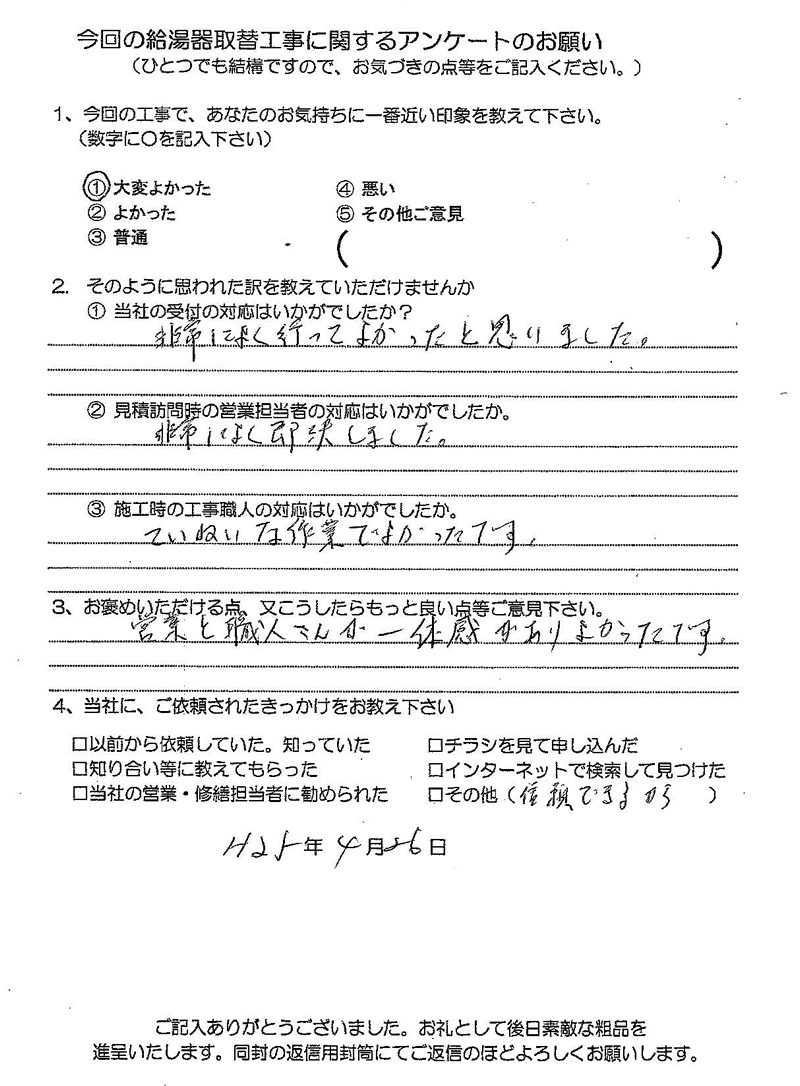 今回の給湯器取替工事に関するアンケートのお願い
（ひとつでも結構ですので、お気づきの点等をご記入ください。）
1、今回の工事で、あなたのお気持ちに一番近い印象を教えて下さい。
（数字に○を記入下さい）
① 大変よかった ④ 悪い
② よかった ⑤ その他ご意見
③ 普通 （ ）
2. そのように思われた訳を教えていただけませんか
① 当社の受付の対応はいかがでしたか？
非常によく行ってよかったと思いました。
② 見積訪問時の営業担当者の対応はいかがでしたか。
非常によく即決しました。
③ 施工時の工事職人の対応はいかがでしたか。
ていねいな作業でよかったです。
3、お褒めいただける点、又こうしたらもっと良い点等ご意見下さい。
営業と職人さんが一体感がありよかったです。
4、当社に、ご依頼されたきっかけをお教え下さい
□以前から依頼していた。知っていた □チラシを見て申し込んだ
□知り合い等に教えてもらった □インターネットで検索して見つけた
□当社の営業・修繕担当者に勧められた □その他（信頼できるから ）
H25年4月26日
ご記入ありがとうございました。お礼として後日素敵な粗品を
進呈いたします。同封の返信用封筒にてご返信のほどよろしくお願いします。